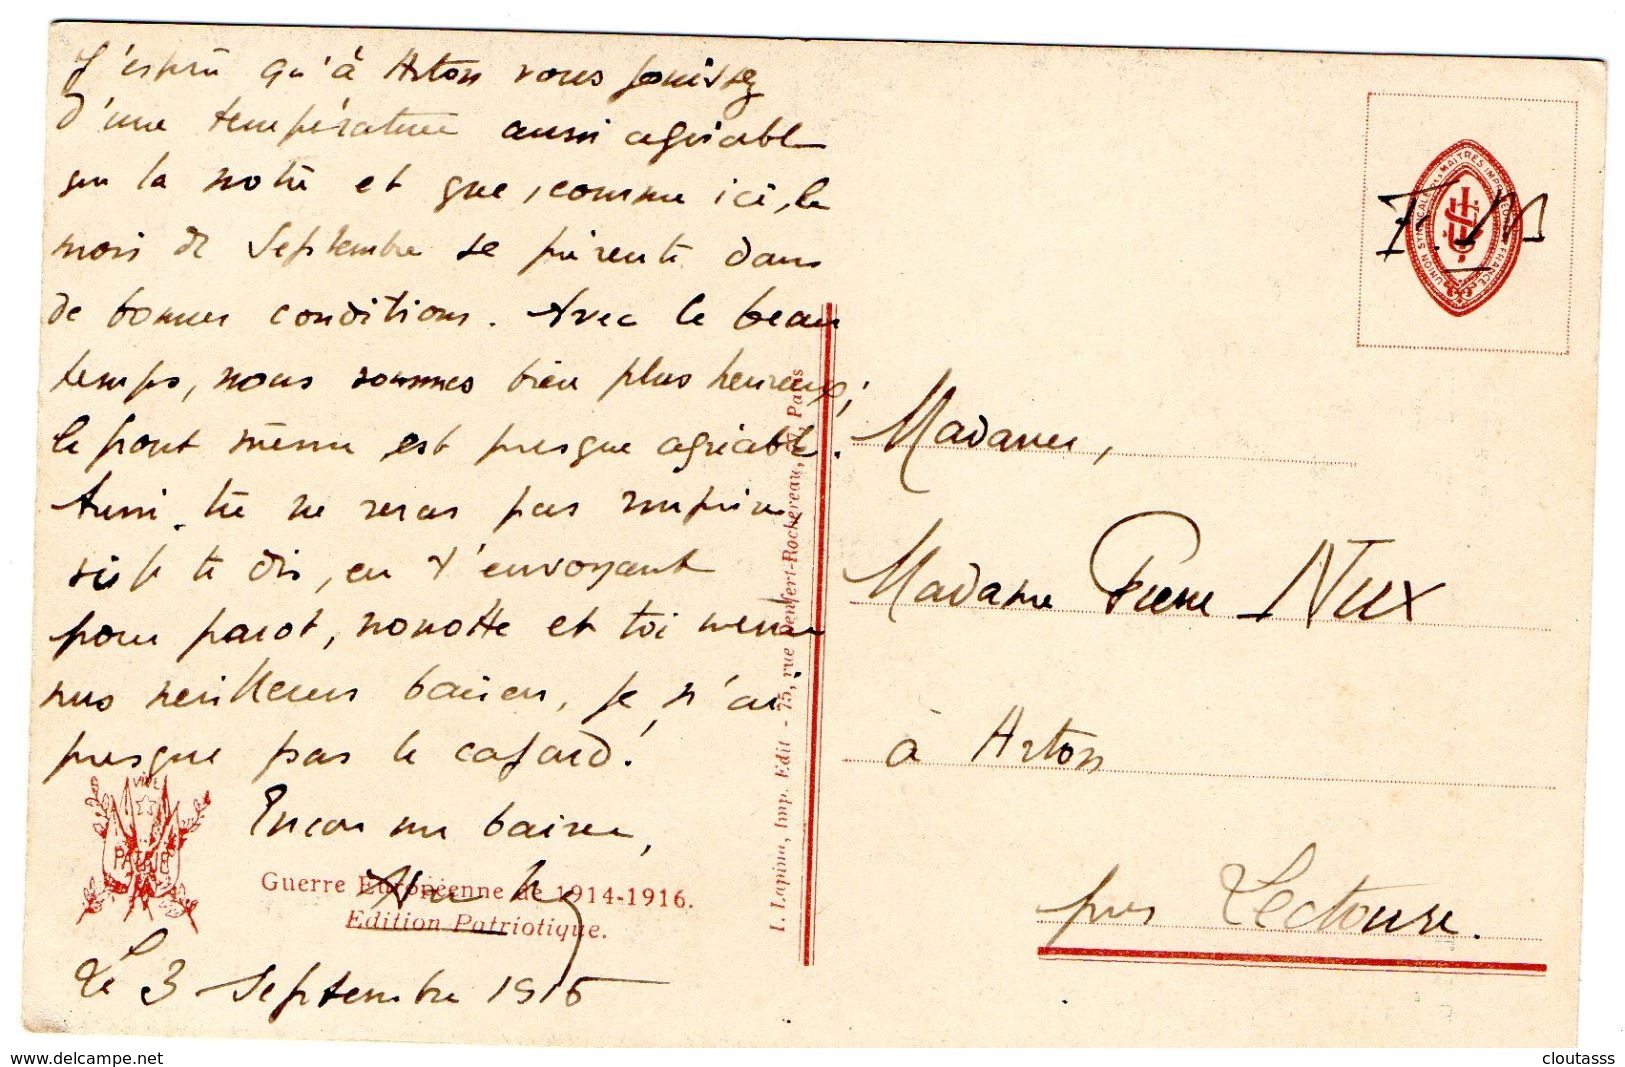 J'espère qu'à Arton vous jouissez
d'une température aussi agréable
que la notre et que, comme ici, le
mois de Septembre se présente dans
de bonnes conditions. Avec le beau
temps, nous sommes bien plus heureux;
le front même est presque agréable.
Aussi, tu ne seras pas surprise
si je te dis, en t'envoyant
pour parot, nonotte et toi même
mes meilleurs baisers, je n'ai
presque pas le cafard!
Encore un baiser,
Le 3 Septembre 1916
VIVE
PATRIE
Guerre Européenne de 1914-1916.
Edition Patriotique.
I. Lapina, Imp. Edit - 75, rue Denfert-Rochereau, Paris
F.M
UNION SYNDICALE MAITRES IMPRIMEURS FRANCE
Madame,
Madame Pierre Nux
à Arton
près Lectoure.
cloutasss
www.delcampe.net